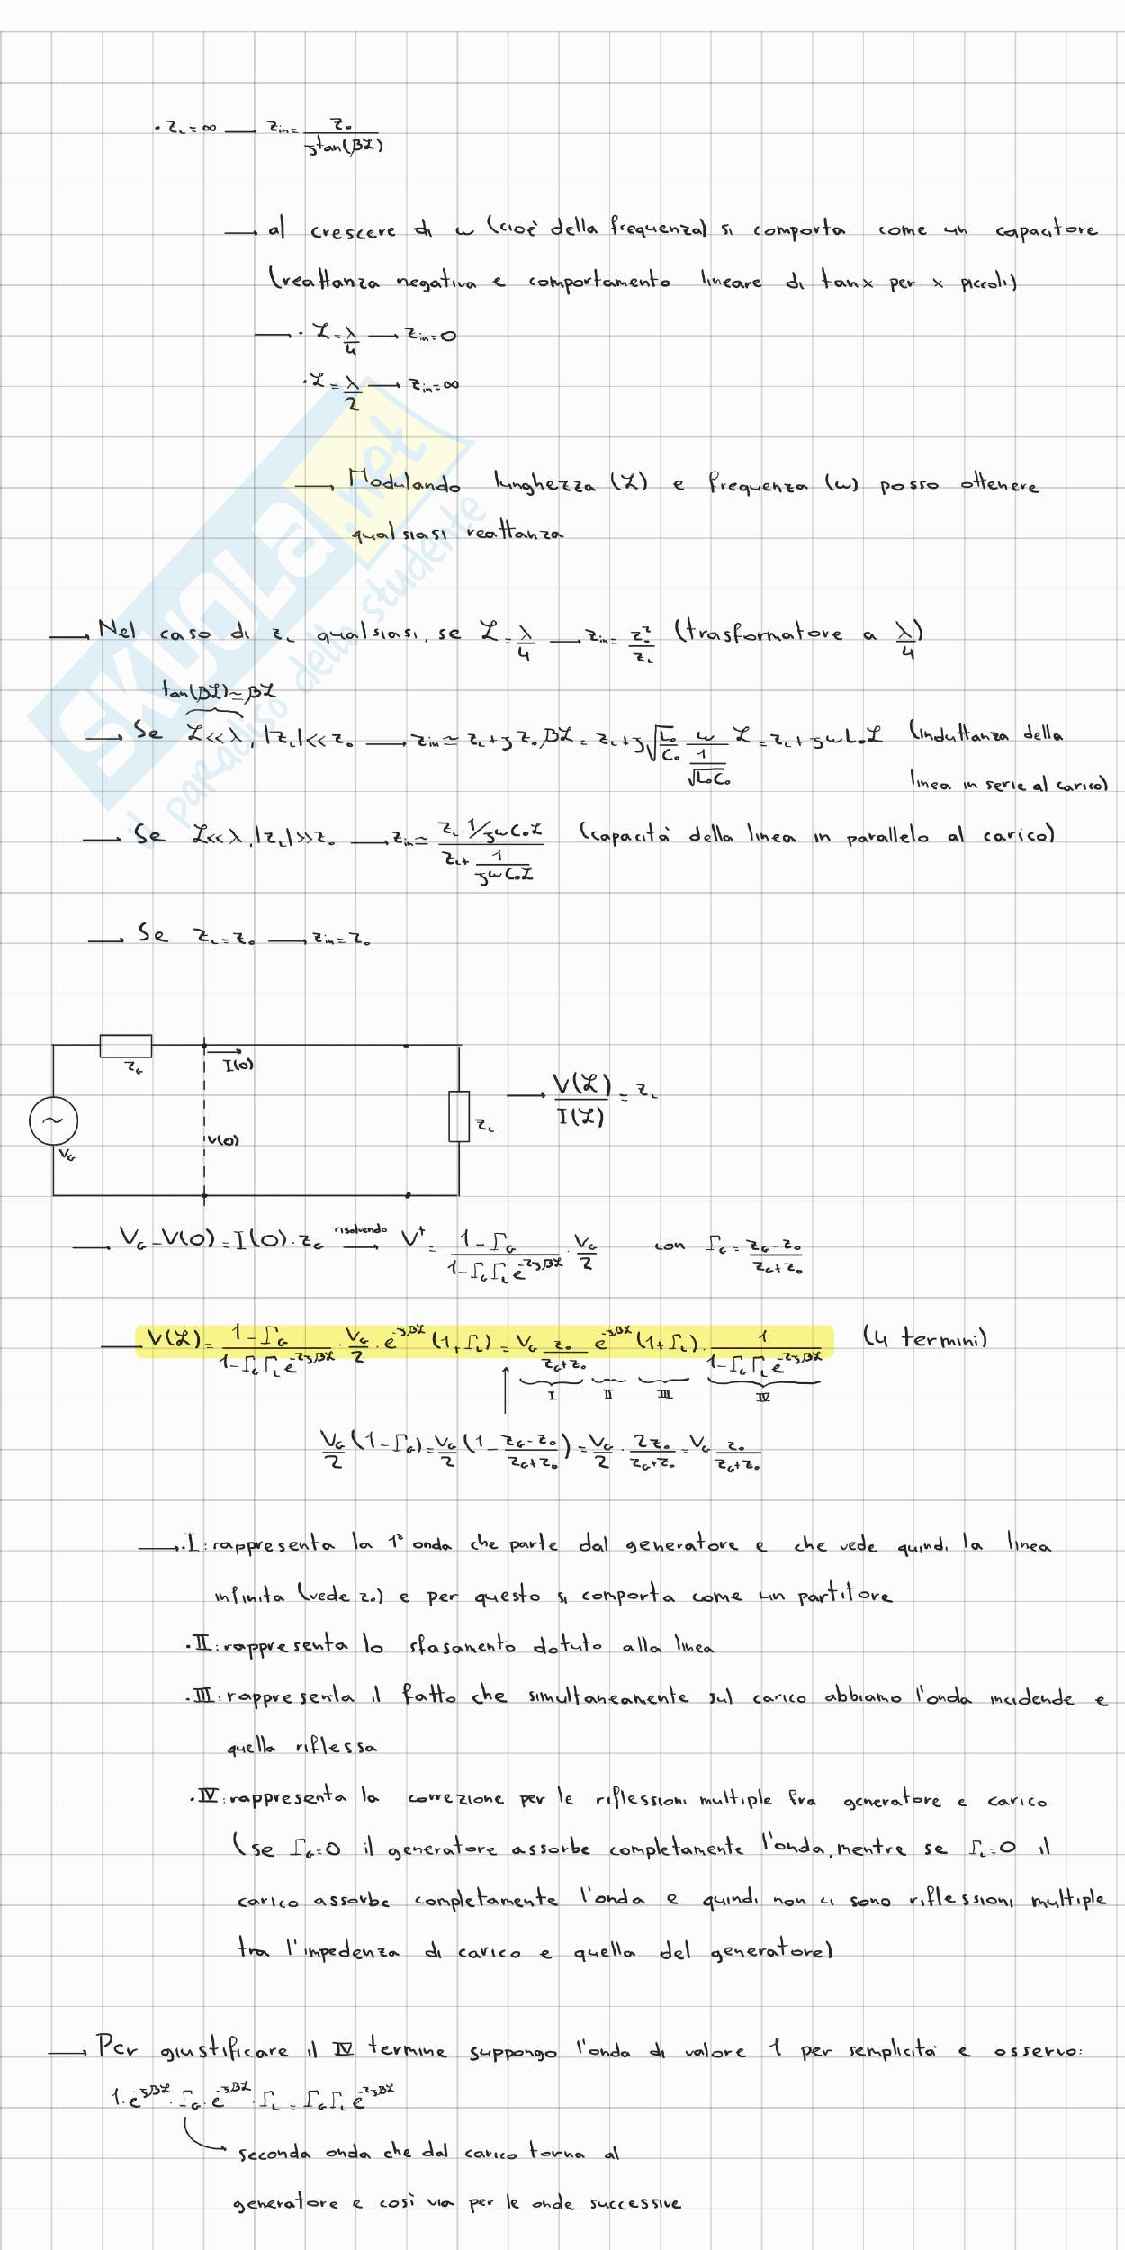 · Z_L = ∞ → Z_in = Z_0 / (j tan(βℒ))
→ al crescere di ω (cioè della frequenza) si comporta come un capacitore
(reattanza negativa e comportamento lineare di tan x per x piccoli)
→ · ℒ = λ/4 → Z_in = 0
· ℒ = λ/2 → Z_in = ∞
→ Modulando lunghezza (ℒ) e frequenza (ω) posso ottenere
qualsiasi reattanza
→ Nel caso di Z_L qualsiasi, se ℒ = λ/4 → Z_in = Z_0²/Z_L (trasformatore a λ/4)
tan(βℒ) ≃ βℒ
→ Se ℒ << λ, |Z_L| << Z_0 → Z_in ≃ Z_L + j Z_0 βℒ = Z_L + j √(L_0/C_0) ω/(1/√(L_0C_0)) ℒ = Z_L + jωL_0ℒ (induttanza della
linea in serie al carico)
→ Se ℒ << λ, |Z_L| >> Z_0 → Z_in ≃ (Z_L 1/jωC_0ℒ) / (Z_L + 1/(jωC_0ℒ)) (capacità della linea in parallelo al carico)
→ Se Z_L = Z_0 → Z_in = Z_0
Z_G
I(0)
→ V(ℒ)/I(ℒ) = Z_L
~
Z_L
V(0)
V_G
→ V_G - V(0) = I(0)·Z_G risolvendo → V⁺ = (1 - Γ_G)/(1 - Γ_GΓ_L e^{-2jβℒ}) · V_G/2 con Γ_G = (Z_G - Z_0)/(Z_G + Z_0)
→ V(ℒ) = (1 - Γ_G)/(1 - Γ_GΓ_L e^{-2jβℒ}) · V_G/2 · e^{-jβℒ} (1 + Γ_L) = V_G Z_0/(Z_G + Z_0) e^{-jβℒ} (1 + Γ_L) · 1/(1 - Γ_GΓ_L e^{-2jβℒ}) (4 termini)
I II III IV
V_G/2 (1 - Γ_G) = V_G/2 (1 - (Z_G - Z_0)/(Z_G + Z_0)) = V_G/2 · 2Z_0/(Z_G + Z_0) = V_G Z_0/(Z_G + Z_0)
→ · I: rappresenta la 1ª onda che parte dal generatore e che vede quindi la linea
infinita (vede Z_0) e per questo si comporta come un partitore
· II: rappresenta lo sfasamento dotuto alla linea
· III: rappresenta il fatto che simultaneamente sul carico abbiamo l'onda incidende e
quella riflessa
· IV: rappresenta la correzione per le riflessioni multiple fra generatore e carico
(se Γ_G = 0 il generatore assorbe completamente l'onda, mentre se Γ_L = 0 il
carico assorbe completamente l'onda e quindi non ci sono riflessioni multiple
tra l'impedenza di carico e quella del generatore)
→ Per giustificare il IV termine suppongo l'onda di valore 1 per semplicità e osservo:
1 · e^{-jβℒ} · Γ_G · e^{-jβℒ} · Γ_L = Γ_GΓ_L e^{-2jβℒ}
seconda onda che dal carico torna al
generatore e così via per le onde successive
SKUOLA.net
il paradiso dello studente